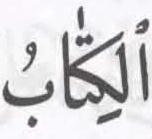 ٱلْكِتَٰابُ